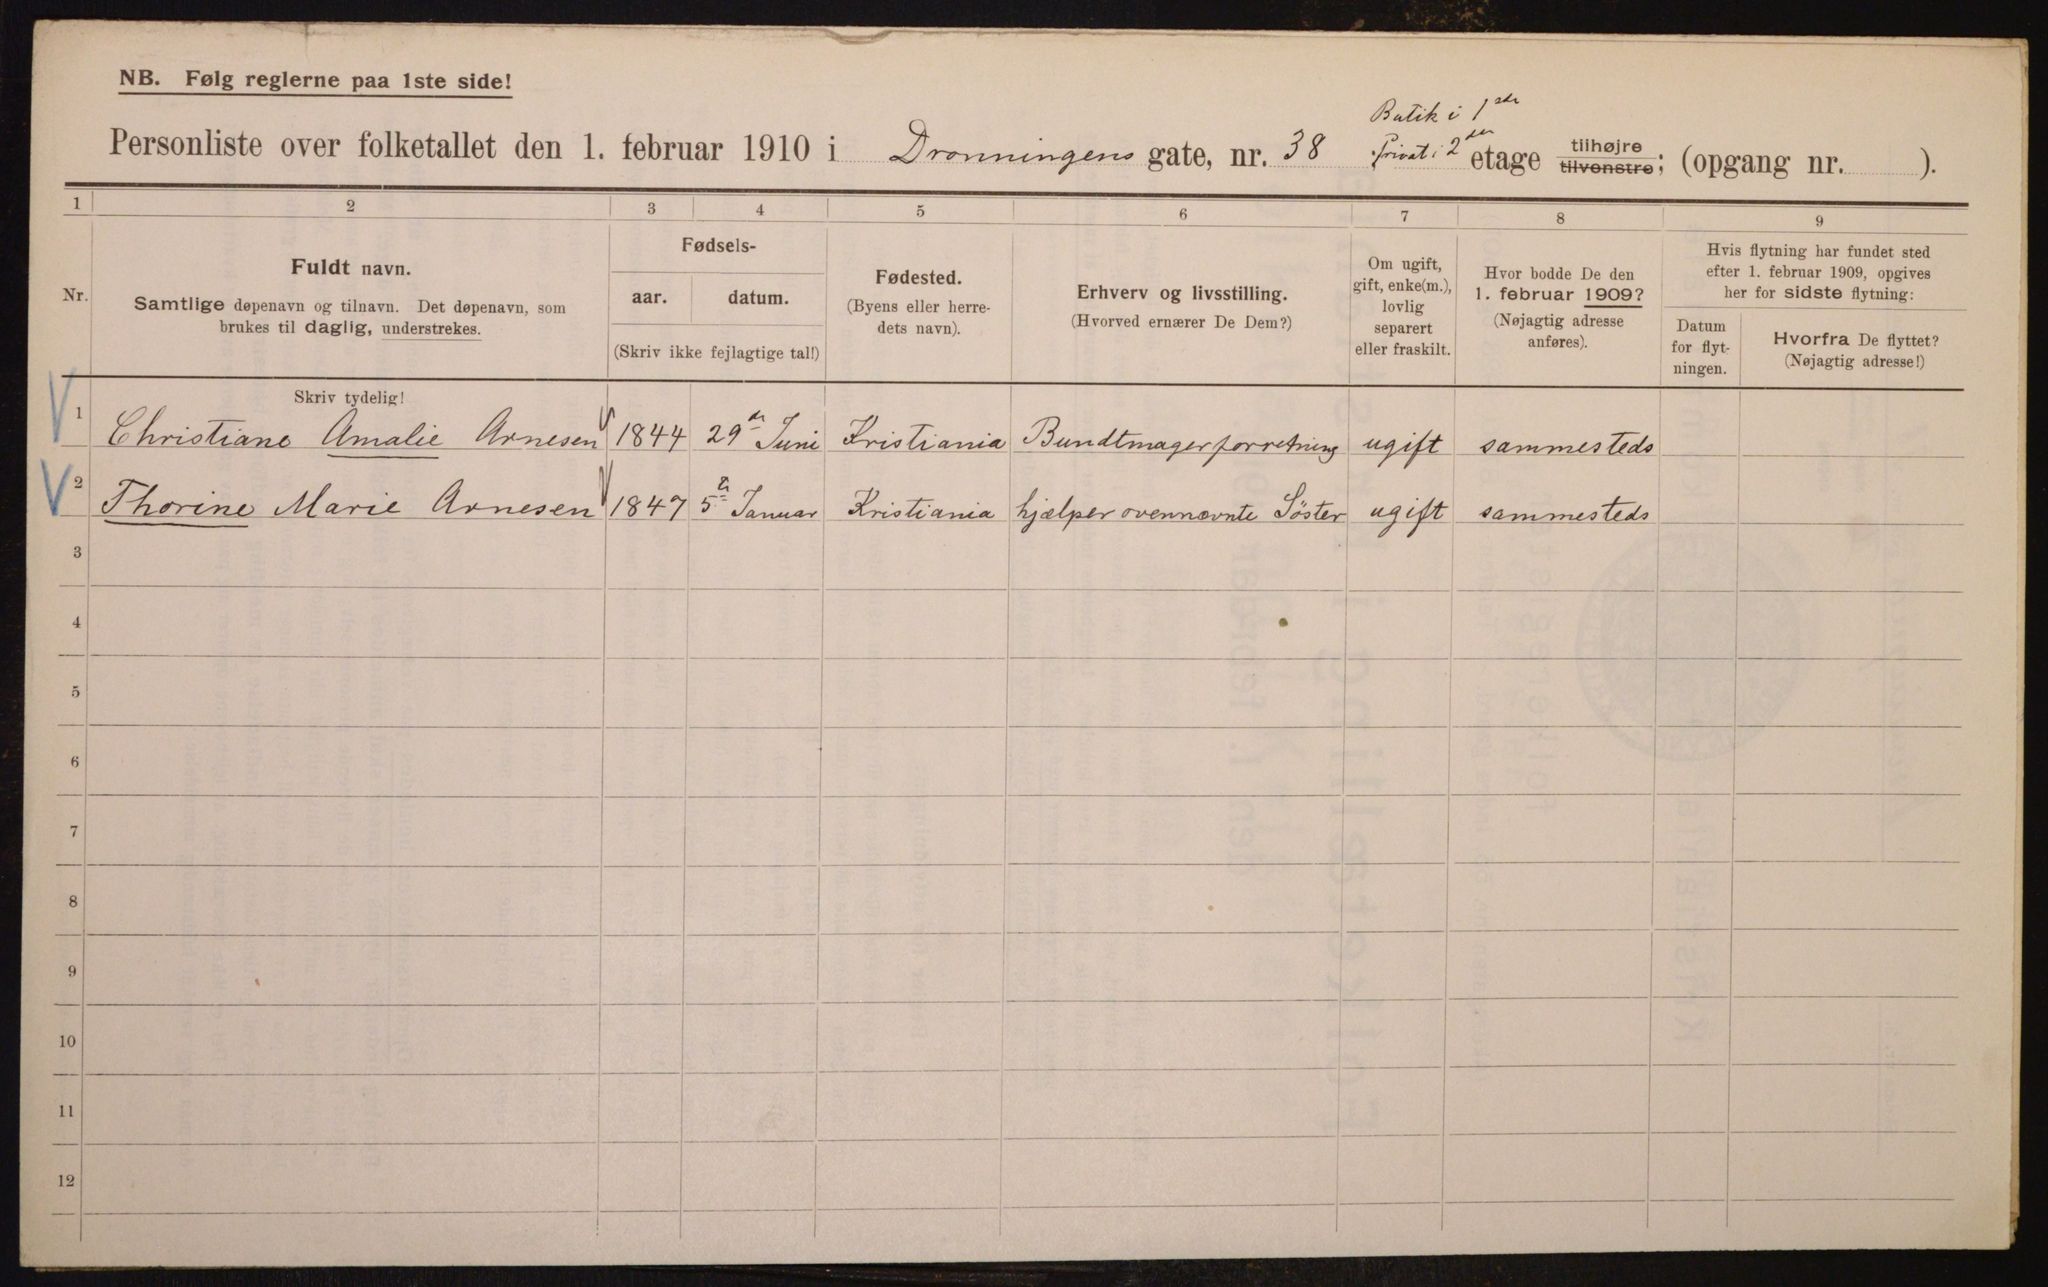 NB. Følg reglerne paa 1ste side!
Butik i 1ste
Personliste over folketallet den 1. februar 1910 i Dronningens gate, nr. 38 privat i 2den etage tilhøjre tilvenstre; (opgang nr. ).
1 2 3 4 5 6 7 8 9
Nr.
Fuldt navn.
Samtlige døpenavn og tilnavn. Det døpenavn, som
brukes til daglig, understrekes.
Fødsels-
aar. datum.
(Skriv ikke fejlagtige tal!)
Fødested.
(Byens eller herre-
dets navn).
Erhverv og livsstilling.
(Hvorved ernærer De Dem?)
Om ugift,
gift, enke(m.),
lovlig
separert
eller fraskilt.
Hvor bodde De den
1. februar 1909?
(Nøjagtig adresse
anføres).
Hvis flytning har fundet sted
efter 1. februar 1909, opgives
her for sidste flytning:
Datum
for flyt-
ningen.
Hvorfra De flyttet?
(Nøjagtig adresse!)
Skriv tydelig!
1 Christiane Amalie Arnesen 1844 29de Juni Kristiania Bundtmagerforretning ugift sammesteds
2 Thorine Marie Arnesen 1847 5te Januar Kristiania hjælper ovennævnte Söster ugift sammesteds
3
4
5
6
7
8
9
10
11
12